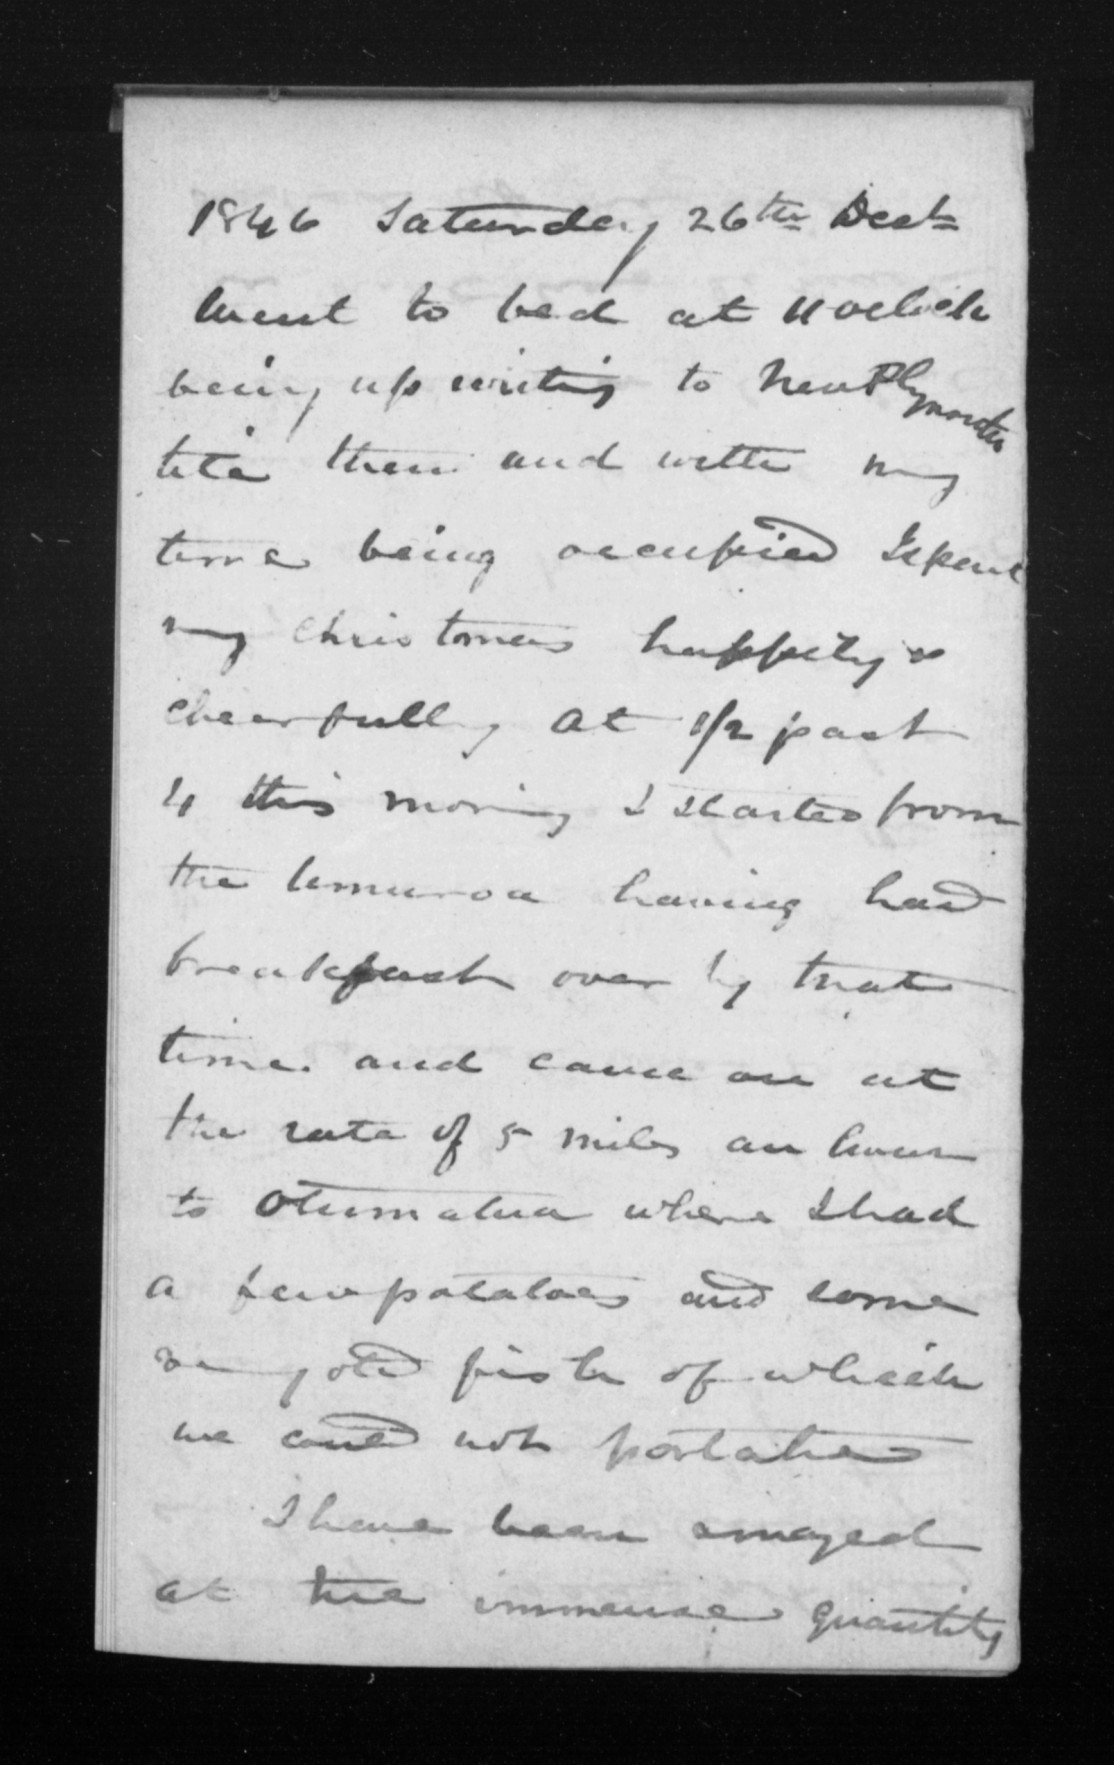 1846 Saturday 26th Decbr
Went to bed at 11 oclock
being up writing to New Plymouth
till then and with my
time being occupied I spent
my christmas happily &
cheerfully at 1/2 past
4 this morning I started from
the having had
breakfast over by that
time. and came on at
the rate of 5 miles an hour
to Otumatua where I had
a few potatoes and some
very old fish of which
we could not partake
I have been amazed
at the immense quantity